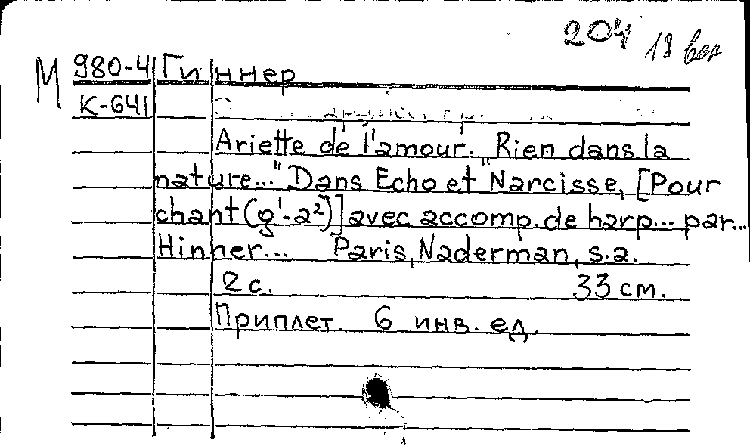 204 18
М 980-4 Гиннер
К-641
Ariette de l'amour. "Rien dans la
nature..." Dans Echo et Narcisse, [Pour
chant (g¹-a²)] avec accomp. de harp... par...
Hinner... Paris, Naderman, s.a.
2 с. 33 см.
Приплет. 6 инв. ед.